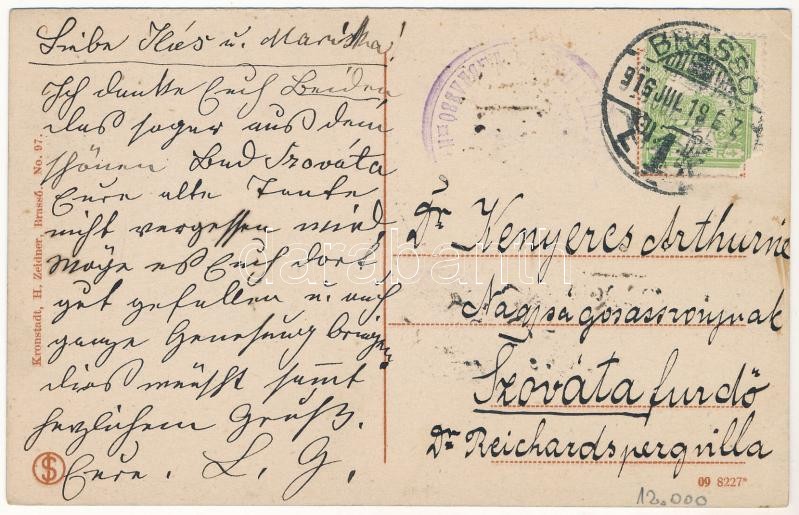 Liebe Ilés u. Mariska!
Ich danke Euch Beiden
das sogar aus dem
schönen Bad Szováta
Eure alte Tante
nicht vergessen wird
Möge es Euch dort
gut gefallen u. auch
ganze Genesung bringen
dies wünscht sammt
herzlichem Gruß.
Eure. L. G.
Kronstadt, H. Zeidner, Brassó. No. 97.
BRASSÓ
916 JUL. 19
Dr Kenyeres Arthurné
Nagyságosasszonynak
Szováta fürdő
Dr Reichardsperg villa
09 8227*
12.000
darabanth